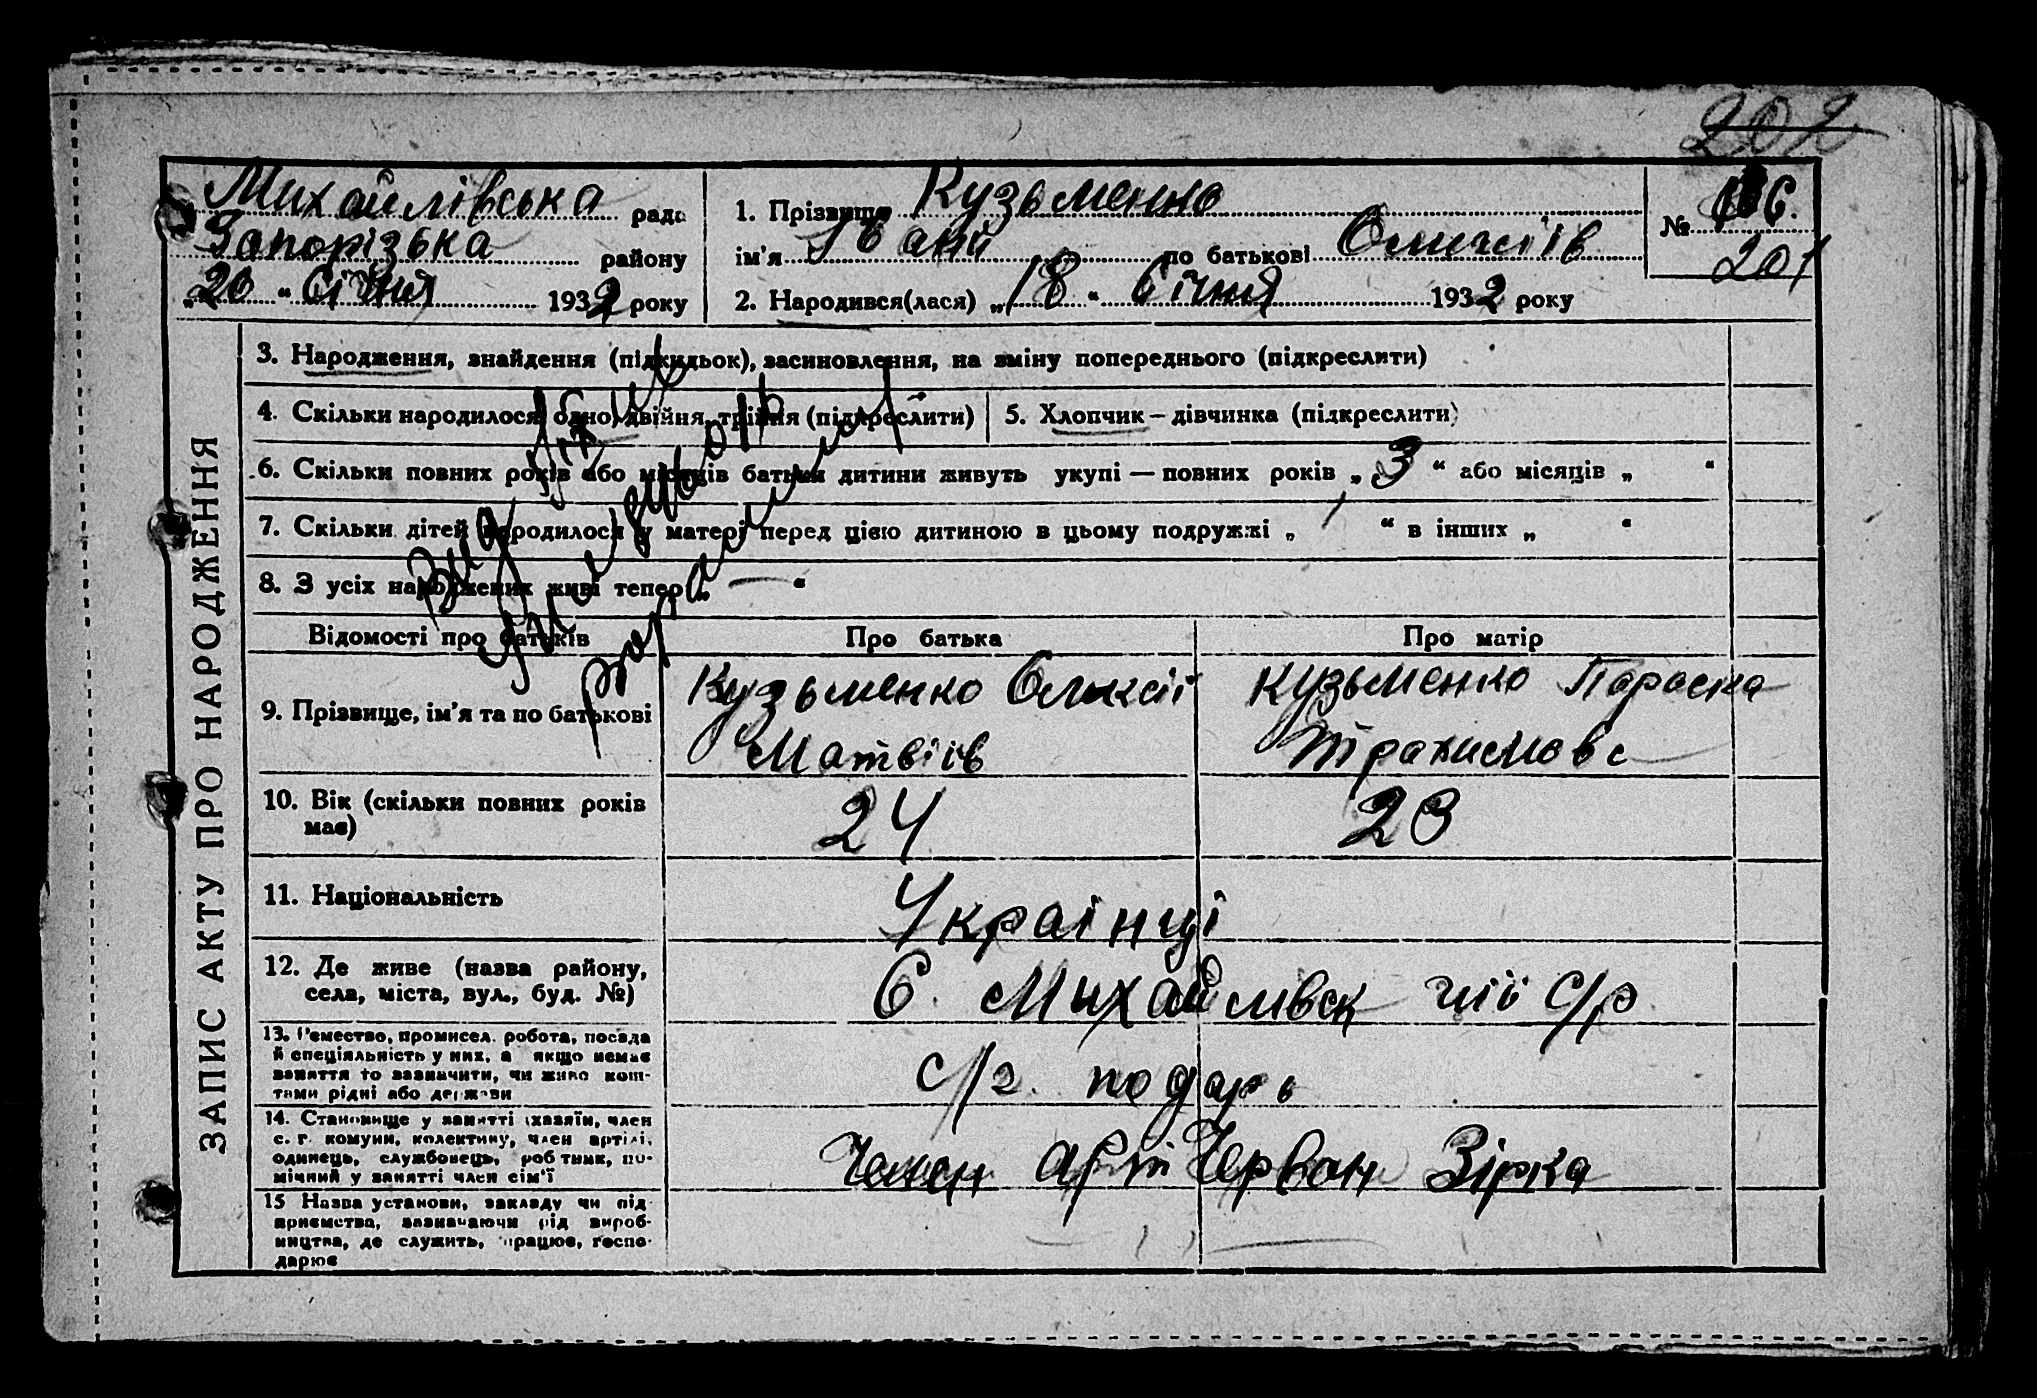 202
Михайлівська рада
Запорізька району
„20“ Січня 1932 року
1. Прізвище Кузьменко
ім'я Іван по батькові Олексіїв
2. Народився(лася) „18“ Січня 1932 року
№
201
ЗАПИС АКТУ ПРО НАРОДЖЕННЯ
3. Народження, знайдення (підкидьок), засиновлення, на зміну попереднього (підкреслити)
4. Скільки народилося: одно, двійня, трійня (підкреслити)
5. Хлопчик — дівчинка (підкреслити)
6. Скільки повних років або місяців батьки дитини живуть укупі — повних років „3“ або місяців „ “
7. Скільки дітей народилося у матері перед цією дитиною в цьому подружжі „ “ в інших „ “
8. З усіх народжених живі тепер „—“
Відомості про батьків Про батька Про матір
9. Прізвище, ім'я та по батькові
Кузьменко Олексій
Матвіїв
Кузьменко Параска
10. Вік (скільки повних років
має)
24
23
11. Національність
Українці
12. Де живе (назва району,
села, міста, вул., буд. №)
С. Михайлівск с/р
13. Ремество, промисел, робота, посада
й спеціяльність у них, а якщо немає
заняття то зазначити, чи живе кош-
тами рідні або держави
с/г.
14. Становище у занятті (хазяїн, член
с.-г. комуни, колективу, член артілі,
одинець, службовець, робітник, по-
мічний у занятті член сім'ї
Член Арт Червон Зірка
15 Назва установи, закладу чи під-
приємства, зазначаючи рід вироб-
ництва, де служить, працює, госпо-
дарює